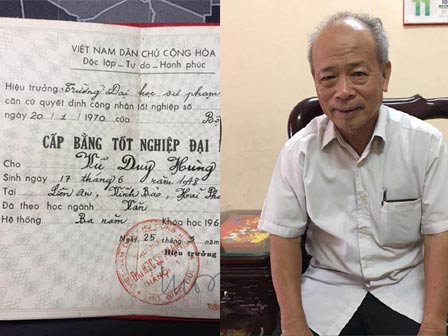 VIỆT NAM DÂN CHỦ CỘNG HÒA
Độc lập - Tự do - Hạnh phúc
Hiệu trưởng Trường Đại học sư phạm
căn cứ quyết định công nhận tốt nghiệp số
ngày 20/1/1970 của Bộ
CẤP BẰNG TỐT NGHIỆP ĐẠI
Cho Vũ Duy Hùng
Sinh ngày 17 tháng 6 năm
Tại Liên Am, Vĩnh Bảo, Hải
Đã theo học ngành Văn
Hệ thống Ba năm Khóa học 196
Ngày 25 tháng
Hiệu trưởng
HANOI
11